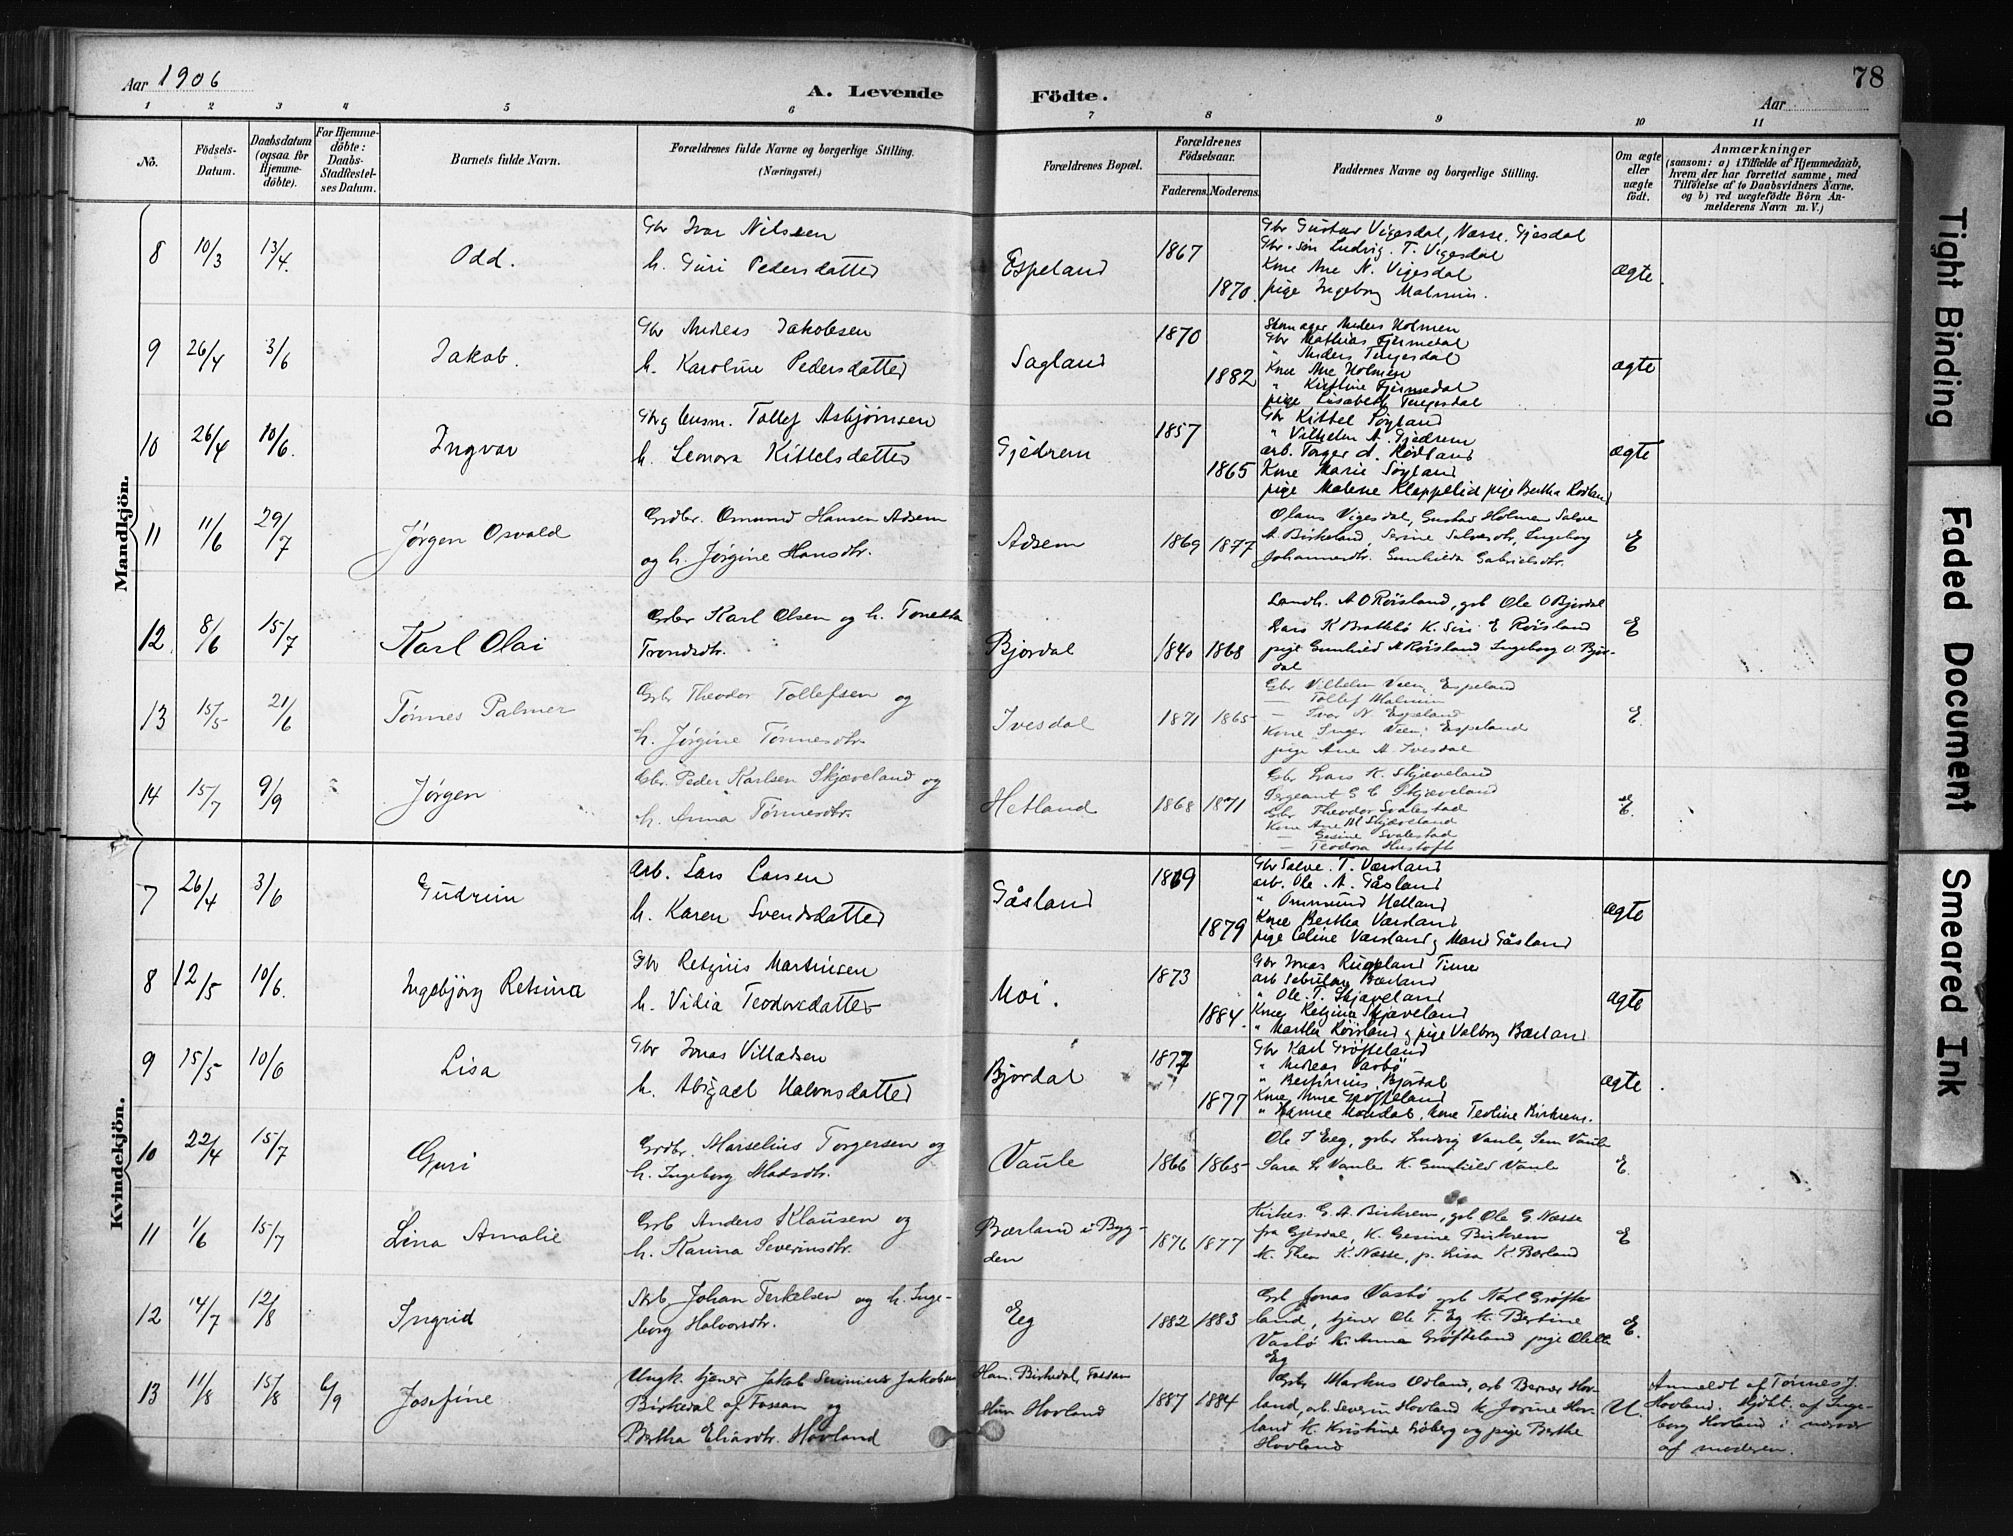 Aar 1906
A. Levende Födte.
Aar
78
1 2 3 4 5 6 7 8 9 10 11
No.
Födsels-Datum.
Daabsdatum (ogsaa for Hjemme-döbte).
For Hjemme-döbte: Daabs-Stadfestel-ses Datum.
Barnets fulde Navn.
Forældrenes fulde Navne og borgerlige Stilling. (Næringsvei.)
Forældrenes Bopæl.
Forældrenes Födselsaar.
Faderens. Moderens.
Faddernes Navne og borgerlige Stilling.
Om ægte eller uægte födt.
Anmærkninger
(saasom: a) i Tilfælde af Hjemmedaab,
hvem der har forrettet samme, med
Tilföielse af to Daabsvidners Navne.
og b) ved uægtefödte Börn An-
melderens Navn m. V.)
Mandkjön.
8 10/3 13/4. Odd. Gbr Ivar Nilssen
h. Guri Pedersdatter Espeland 1867 1870. ægte.
Gbr Gustav Vigesdal, Næsse, Gjesdal
Gbr. søn Ludvig T. Vigesdal
Kone Ane N. Vigesdal
pige Ingeborg Malmin.
9 26/4 3/6 Jakob. Gbr Andreas Jakobsen
h. Karoline Pedersdatter Sagland 1870 1882 ægte
Skomager Anders Holmen
Gbr Mathias Fjermedal
" Anders Tengesdal
Kone Ane Holmen
" Kristine Fjermedal
pige Lisabeth Tengesdal
10 26/4 10/6. Ingvar Gbr g husm. Tollef Asbjørnsen
h. Leonora Kittelsdatter Gjedrem 1857 1865 ægte
Gbr Kittel Søyland
" Vilhelm A. Gjedrem
arb. Torger d. Rødland
Kone Marie Søyland
pige Malene Kleppelid pige Bertha Rødland
11 11/6 29/7 Jørgen Osvald Grdbr. Omund Hansen Adsem
og h. Jørgine Hansdtr. Adsem 1869 1877 E
Olaus Vigesdal, Gustav Holmen Salve
A. Birkeland, Serine Salvesdtr, Ingeborg
Johannesdtr. Gunhilda Gabrielsdtr.
12. 8/6 15/7 Karl Olai Grbr Karl Olsen og h. Tonetta
Trondsdtr. Bjordal 1840 1868 E
Landh. A O Røisland, grb Ole O Bjordal
Lars K Brattebö K. Siri E Røisland
pige Gunhild A Røisland Ingeborg O. Bjor-
dal
13 15/5 21/6 Tønnes Palmer Gbr Theodor Tollefsen og
h. Jørgine Tønnesdtr. Ivesdal 1871 1865 E.
Gbr Vilhelm Veen, Espeland
— Tollef Malmin
— Ivar N. Espeland
Kone Inger Veen, Espeland
pige Ane A. Ivesdal
14 15/7 9/9 Jørgen Gbr. Peder Karlsen Skjæveland og
h. Anna Tønnesdtr. Hetland 1868 1871 E.
Gbr Lars K. Skjæveland
Sergeant E C Skjæveland
Gbr Theodor Svalestad
Kone Ane M Skjæveland
— Gesine Svalestad
— Teodora Hustoft
Kvindekjön.
7 26/4 3/6 Gudrun Arb. Lars Larsen
h. Karen Svendsdatter Gåsland 1869 1879 ægte
Gbr Salve. T. Værland
arb. Ole. A. Gåsland
" Ommund Helland
Kone Bertha Værland
pige Celine Værsland g Marie Gåsland
8 12/5 10/6. Ingebjørg Retsina Gbr Retzius Martinsen
h. Vidia Teodorsdatter Moi. 1873 1884. ægte
Gbr Jonas Rugeland Time
arb Sebulon Bærland
" Ole T. Skjæveland
Kone Retzina Skjæveland
" Martha Røisland g pige Valborg Bærland
9 15/5 10/6 Lisa Gbr Jonas Villadsen
h. Abigael Halvorsdatter Bjordal 1877 1877 ægte.
Gbr Karl Grøfteland
" Andreas Vasbö
" Bertinius Bjordal
Kone Anne Grøfteland
" Hanne Mondal, Kone Teoline Birkrem.
10 22/4 15/7 Guri Grdbr. Marselius Torgersen og
h. Ingeborg Madsdtr. Vaule 1866 1865 E.
Ole T Eeg, grbr Ludvig Vaule, Sem Vaule
Sara S. Vaule K. Gunhild Vaule
11 1/6 15/7 Lina Amalie Grb Anders Klausen og
h. Karina Severinsdtr. Bærland i Byg-
den 1876 1877 E
Kirkes. G. A. Birkrem, grb Ole G. Næsse
fra Gjesdal, K. Gesine Birkrem
K. Thea K. Næsse, p. Lisa K Bærland
12 14/7 12/8 Ingrid Arb Johan Terkelsen og h. Inge-
borg Halvorsdtr. Eeg 1882 1883 E.
Grb Jonas Vasbö grb Karl Grøfte-
land, tjener Ole T. Eg K. Bertine
Vasbö K. Anna Grøfteland pige Olette
Eg
13 11/8 15/8 6/9 Josefine Ungk. tjener Jakob Jakobsen
Birkedal af Fossan og
Bertha Eliasdtr. Hovland
Han. Birkedal, Fossan
Hun Hovland 1887 1884 U.
Grb. Markus Ødland, arb Berner Hov-
land, arb. Severin Hovland K Josine Hov-
land K. Kristine Sjöberg og pige Berthe
Hovland
Anmeldt af Tønnes J.
Hovland. Hjdbt. af Inge-
borg Hovland i nærvær
af moderen.
Tight Binding
Faded Document
Smeared Ink